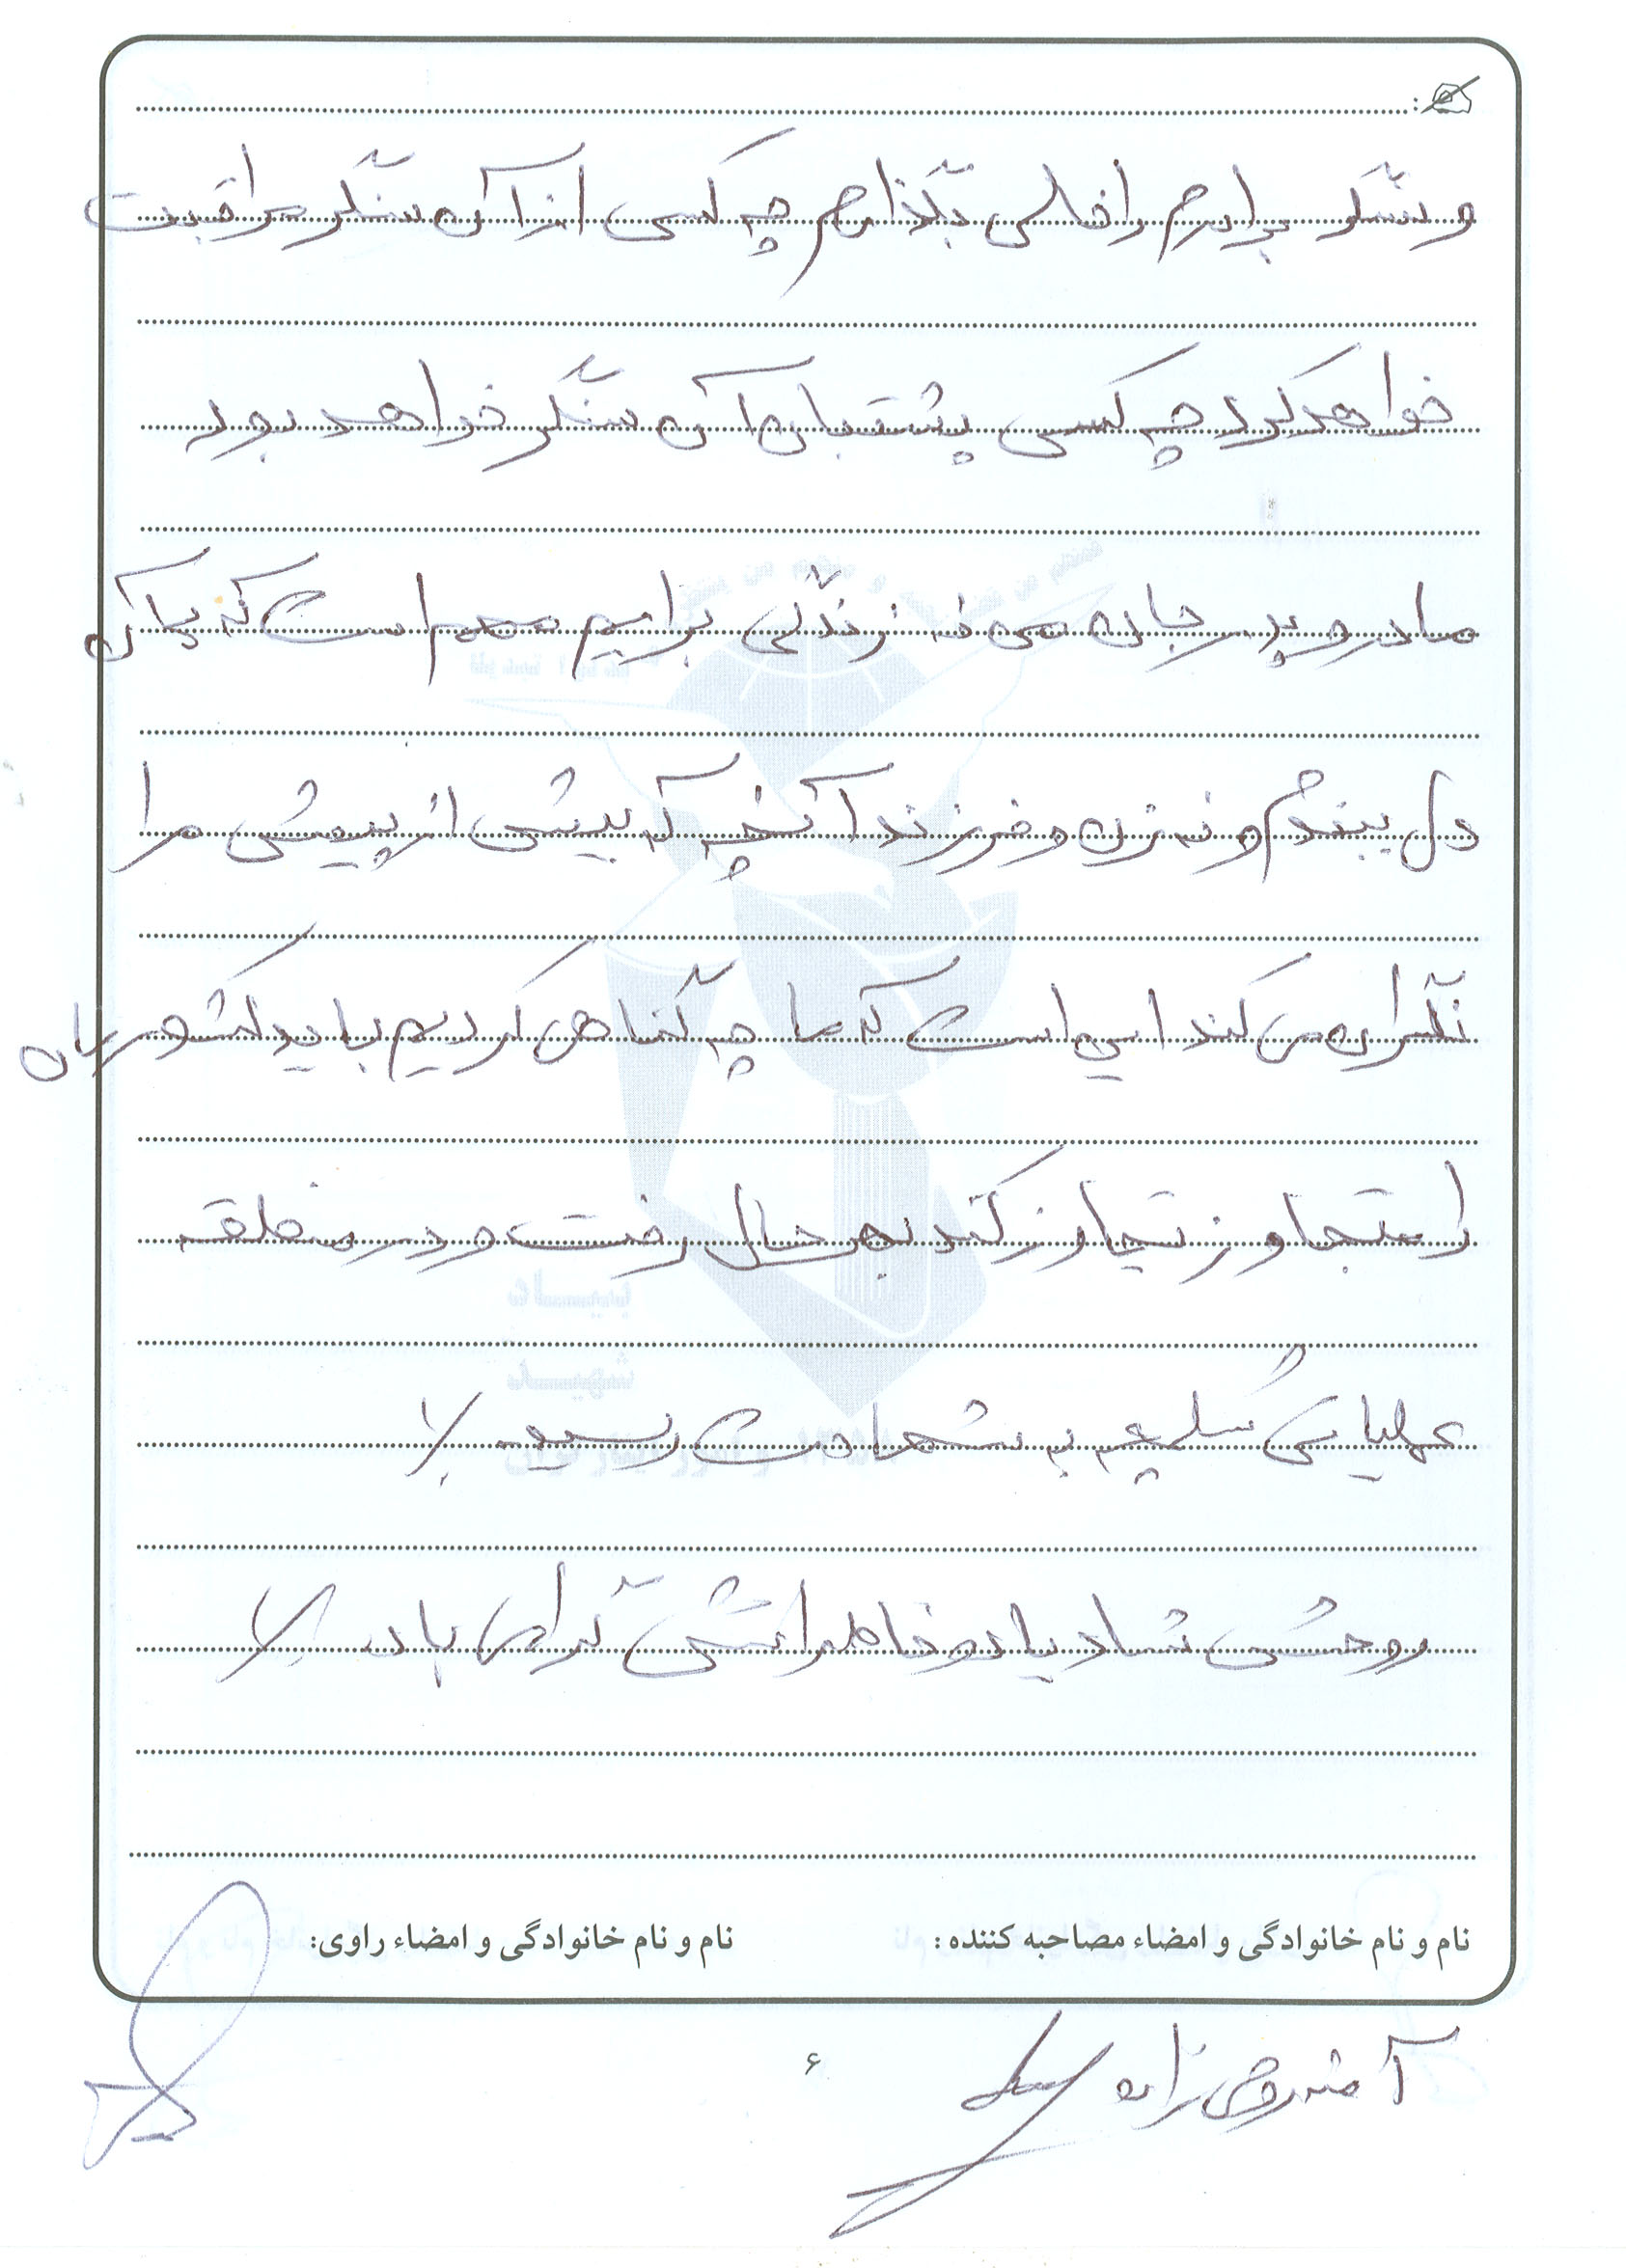 و سنگر برادرم را خالی بگذارم چه کسی از آن سنگر مراقبت
خواهد کرد چه کسی پشتبان آن سنگر خواهد بود
مادر و پدر جان من نه زندگی برایم مهم است که به آن
دل ببندم و نه زن و فرزند آنچه که بیش از پیش مرا
نگران می کند این است که ما چه گناهی کردیم باید کشورمان
را متجاوز تجاوز کند بهر حال رفت و در منطقه
عملیاتی شلمچه به شهادت رسید
روحش شاد یاد و خاطراتش گرامی باد
نام و نام خانوادگی و امضاء مصاحبه کننده: نام و نام خانوادگی و امضاء راوی:
۶